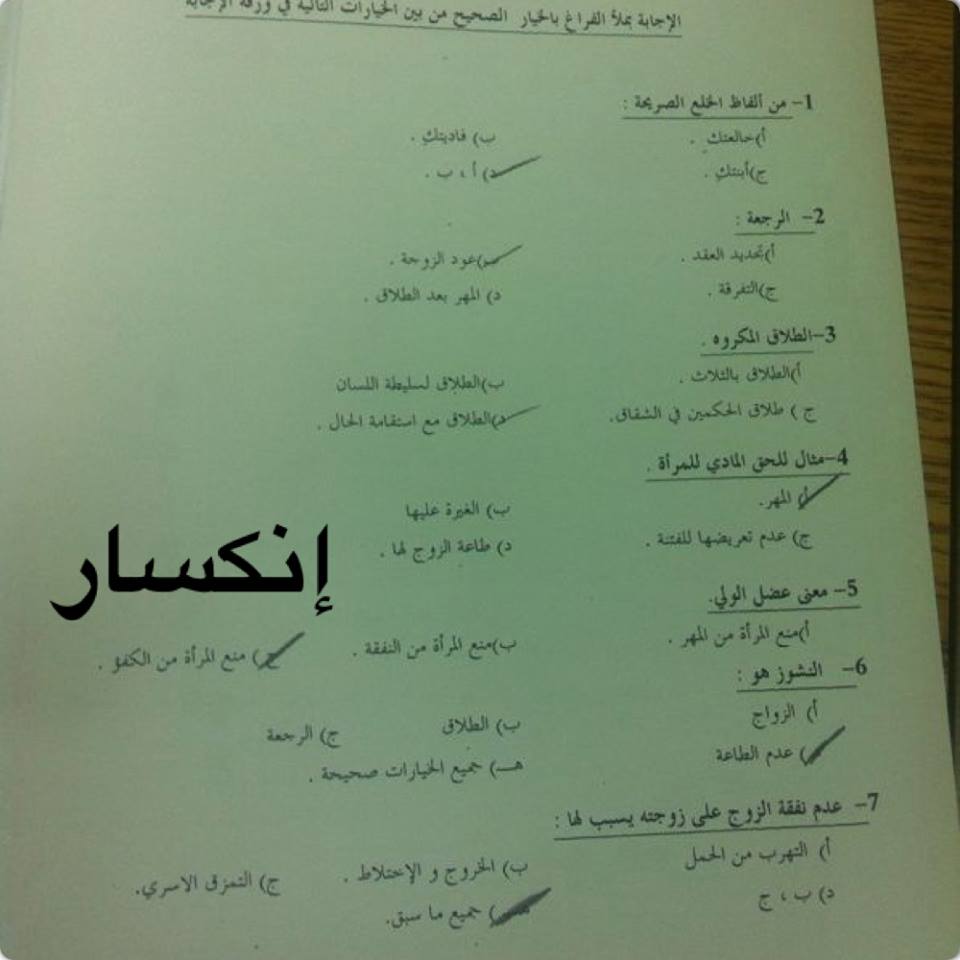 الإجابة بملأ الفراغ بالخيار الصحيح من بين الخيارات التالية في ورقة الإجابة
1- من ألفاظ الخلع الصريحة :
أ)خالعتك . ب) فاديتك .
ج)أبنتك . د) أ ، ب .
2- الرجعة :
أ)تجديد العقد . عود الزوجة .
ج)التفرقة . د) المهر بعد الطلاق .
3-الطلاق المكروه .
أ)الطلاق بالثلاث . ب)الطلاق لسليطة اللسان
ج ) طلاق الحكمين في الشقاق. د)الطلاق مع استقامة الحال .
4-مثال للحق المادي للمرأة .
أ) المهر. ب) الغيرة عليها
ج) عدم تعريضها للفتنة . د) طاعة الزوج لها .
إنكسار
5- معنى عضل الولي.
أ)منع المرأة من المهر . ب)منع المرأة من النفقة . ج) منع المرأة من الكفؤ .
6- النشوز هو :
أ) الزواج ب) الطلاق ج) الرجعة
) عدم الطاعة هـ) جميع الخيارات صحيحة .
7- عدم نفقة الزوج على زوجته يسبب لها :
أ) التهرب من الحمل ب) الخروج و الإختلاط . ج) التمزق الاسري.
د) ب ، ج ) جميع ما سبق.